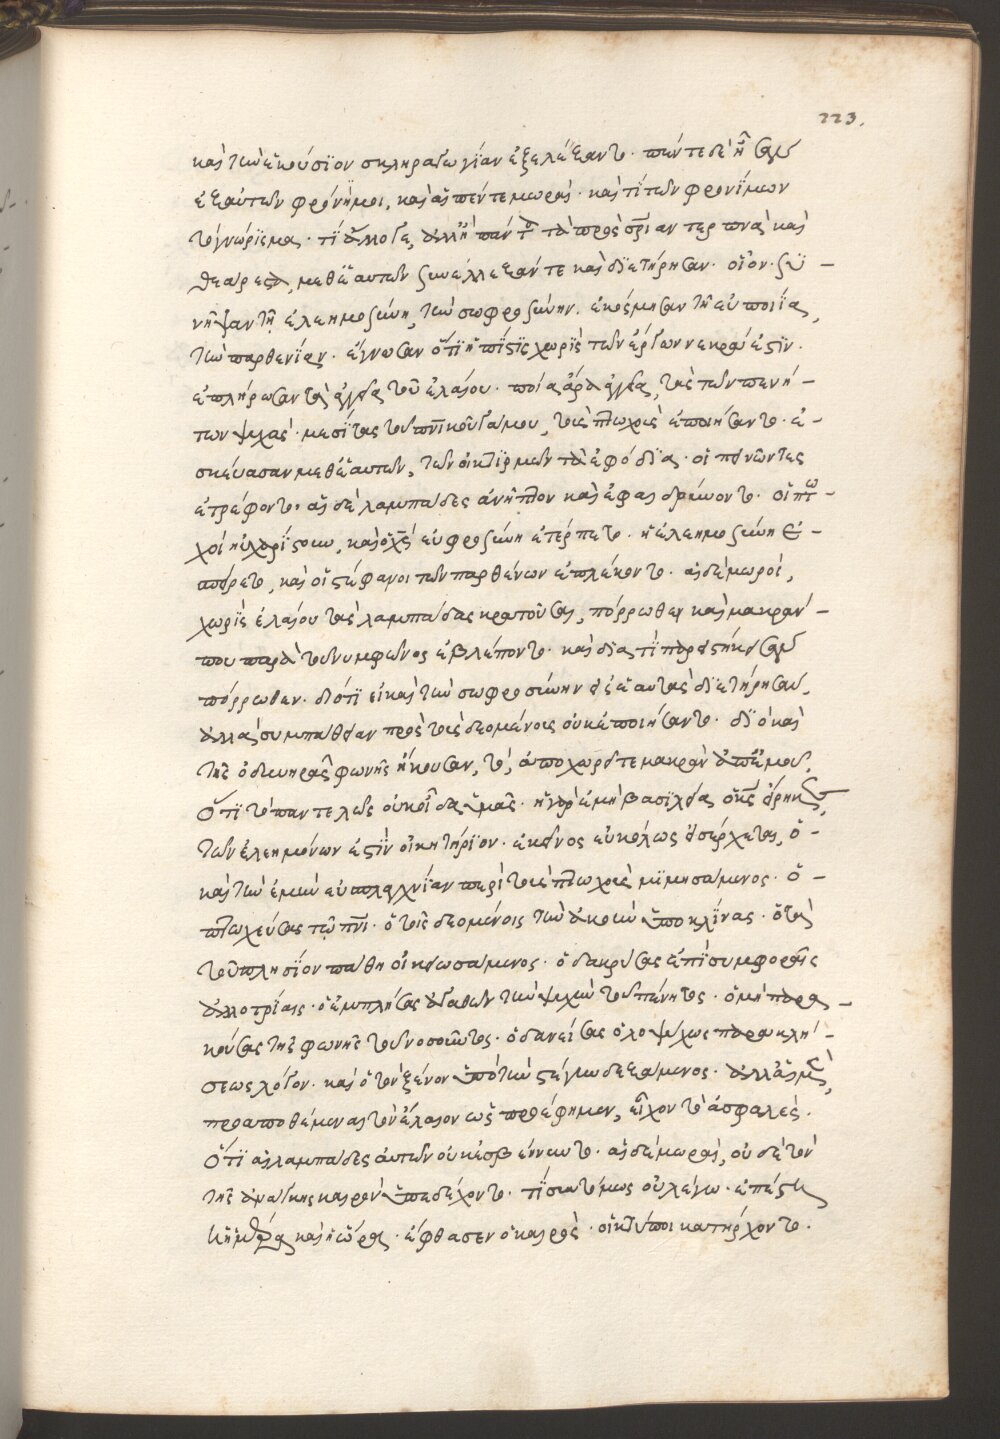 223.
καὶ τὴν ἑκούσιον σκληραγωγίαν ἐξελέξαντο. πέντε δὲ ἦσαν
ἐξ αὐτῶν φρόνιμοι, καὶ αἱ πέντε μωραί. καὶ τί τῶν φρονίμων
τὸ γνώρισμα. τί ἄλλό γε, ἀλλ' ἢ πάντα τὰ πρὸς σωτηρίαν τερπνὰ καὶ
θεάρεστα, μεθ' ἑαυτῶν συνελλέξαντε καὶ διετήρησαν. οἷον. συ-
νῆψαν τῇ ἐλεημοσύνῃ, τὴν σωφροσύνην. ἐκόσμησαν τῇ εὐποιίᾳ,
τὴν παρθενίαν. ἔγνωσαν ὅτι ἡ πίστις χωρὶς τῶν ἔργων νεκρά ἐστιν.
ἐπλήρωσαν τὰ ἀγγεῖα τοῦ ἐλαίου. ποῖα ἄρα ἀγγεῖα, τὰς τῶν πενή-
των ψυχάς. μεσίτας τοῦ πνικοῦ γάμου, τοὺς πτωχοὺς ἐποιήσαντο. ἐ-
σκεύασαν μεθ' ἑαυτῶν, τῶν οἰκτιρμῶν τὰ ἐφόδια. οἱ πεινῶντες
ἐτρέφοντο, αἱ δὲ λαμπάδες ἀνῆπτον καὶ ἐφαιδρύνοντο. οἱ πτω-
χοὶ ηὐχαρίστουν, καὶ ὁ χς εὐφροσύνῃ ἐτέρπετο. ἡ ἐλεημοσύνη ἐ-
σπείρετο, καὶ οἱ στέφανοι τῶν παρθένων ἐπλέκοντο. αἱ δὲ μωραὶ,
χωρὶς ἐλαίου τὰς λαμπάδας κρατοῦσαι, πόρρωθεν καὶ μακράν
που παρὰ τοῦ νυμφῶνος ἐβλέποντο. καὶ διατί παρειστήκεισαν
πόρρωθεν. διότι εἰ καὶ τὴν σωφροσύνην εἰς ἑαυτὰς διετήρησαν,
ἀλλὰ συμπάθειαν πρὸς τοὺς δεομένους οὐκ ἐποιήσαντο. διὸ καὶ
τῆς ὀδυνηρᾶς φωνῆς ἤκουσαν, τὸ, ἀποχωρεῖτε μακρὰν ἀπ' ἐμοῦ,
Ὅτι τὸ παντελῶς οὐκ οἶδα ὑμᾶς. ἡ γὰρ ἐμὴ βασιλεία
τῶν ἐλεημόνων ἐστὶν οἰκητήριον. ἐκεῖνος εὐκόλως εἰσέρχεται, ὁ
καὶ τὴν ἐμὴν εὐσπλαγχνίαν περὶ τοὺς πτωχοὺς μιμησάμενος. ὁ
πτωχεύσας τῷ πνι. ὁ τοῖς δεομένοις τὴν ἀκοὴν ὑποκλίνας. ὁ τὰ
τοῦ πλησίον πάθη οἰκειωσάμενος. ὁ δακρύσας ἐπὶ συμφοραῖς
ἀλλοτρίαις. ὁ ἐμπλήσας ἀγαθῶν τὴν ψυχὴν τοῦ πένητος. ὁ μὴ παρα-
κούσας τῆς φωνῆς τοῦ νοσοῦντος. ὁ δανείσας ὁλοψύχως παρακλή-
σεως λόγον. καὶ ὁ τὸν ξένον ὑπὸ τὴν στέγην δεξάμενος. ἀλλ' αἱ μὲν,
προαποθέμεναι τὸν ἔλαιον ὡς προέφημεν, εἶχον τὸ ἀσφαλές.
Ὅτι αἱ λαμπάδες αὐτῶν οὐκ ἐσβέννυντο. αἱ δὲ μωραὶ, οὐδὲ τὸν
τῆς ἀνάγκης καιρὸν ὑπεδέχοντο. τί συντόμως οὐ λέγω. ἐπέστη
ἡ ἡμέρα καὶ ἡ ὥρα. ἔφθασεν ὁ καιρὸς. οἱ κτύποι κατήρχοντο.